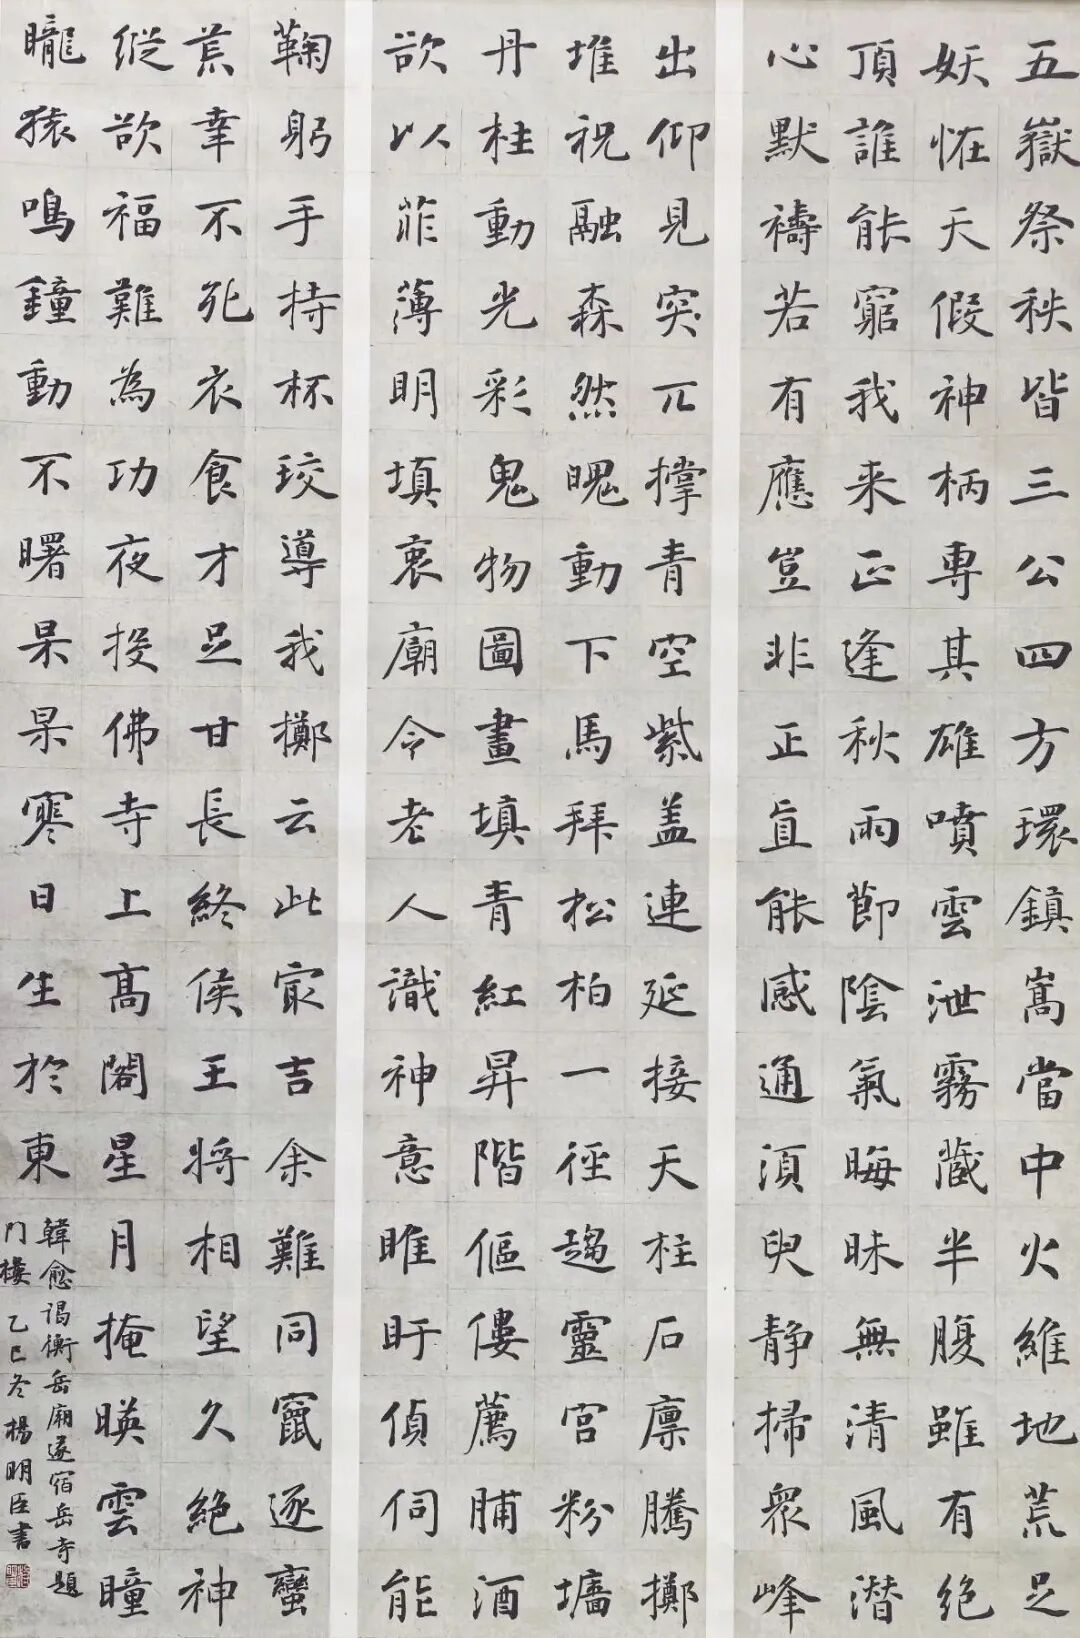 五嶽祭秩皆三公四方環鎮嵩當中火維地荒足
妖恠天假神柄專其雄噴雲泄霧蔵半腹雖有絶
頂誰能窮我来正逢秋雨節陰氣晦昧無清風潜
心默禱若有應豈非正直能感通須臾静掃衆峰
出仰見突兀撑青空紫盖連延接天柱石廪騰擲
堆祝融森然魄動下馬拜松柏一徑趨靈宫粉墻
丹柱動光彩鬼物圖畫填青紅昇階傴僂薦脯酒
欲以菲薄明填衷廟令老人識神意睢盱偵伺能
鞠躬手持杯珓導我擲云此最吉余難同竄逐蠻
荒幸不死衣食才足甘長終侯王將相望久絶神
縱欲福難為功夜投佛寺上髙閣星月掩暎雲瞳
曨猿鳴鐘動不曙杲杲寒日生於東
韓愈谒衡岳廟遂宿岳寺題
门樓 乙巳冬楊明臣書